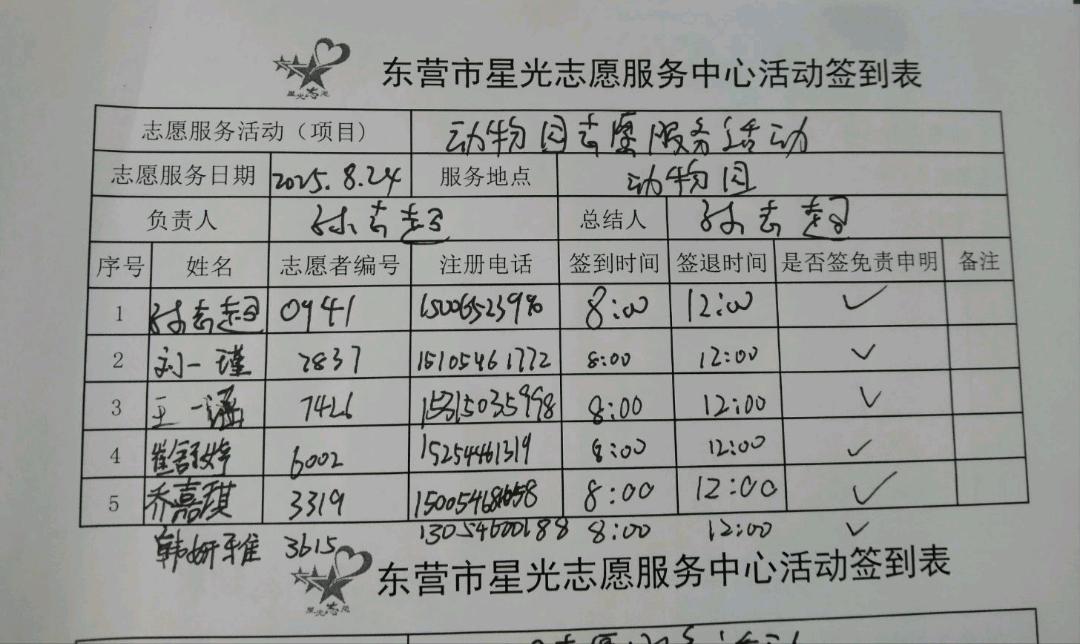 星光志愿
东营市星光志愿服务中心活动签到表
志愿服务活动（项目） 动物园志愿服务活动
志愿服务日期 2025.8.24 服务地点 动物园
负责人 志超 总结人 志超
序号 姓名 志愿者编号 注册电话 签到时间 签退时间 是否签免责申明 备注
1 志超 0941 8:00 12:00 ✓
2 刘一瑾 7837 15105461772 8:00 12:00 ✓
3 王一涵 7426 8:00 12:00 ✓
4 崔舒婷 6002 15254461319 8:00 12:00 ✓
5 乔嘉琪 3319 8:00 12:00 ✓
韩妍雅 3615 13054600188 8:00 12:00 ✓
星光志愿
东营市星光志愿服务中心活动签到表